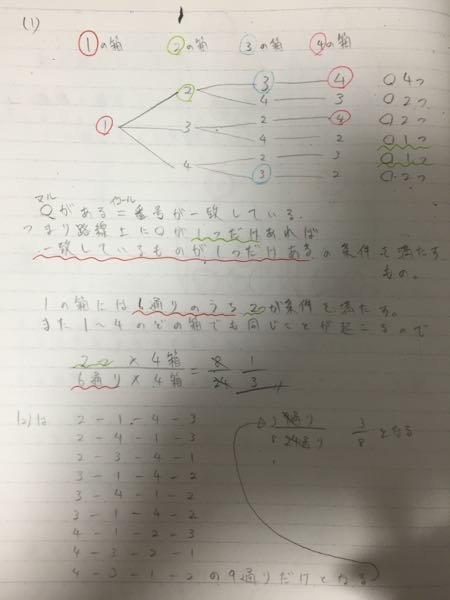 (1)
①の箱 ②の箱 ③の箱 ④の箱
① ② ③ ④ ○4つ
4 3 ○2つ
3 2 ④ ○2つ
4 2 ○1つ
4 2 3 ○1つ
③ 2 ○2つ
マル イコール
○がある=番号が一致している.
つまり路線上に○が1つだけあれば
一致しているものが1つだけあるの条件を満たす
もの。
1の箱には6通りのうち2つが条件を満たす。
また1〜4のどの箱でも同じことが起こるので
2つ×4箱 / 6通り×4箱 = 8/24 1/3
(2)は
2-1-4-3
2-4-1-3
2-3-4-1
3-1-4-2
3-4-1-2
3-1-4-2
4-1-2-3
4-3-2-1
4-3-1-2の9通りだけとなる
3 9通り / 8 24通り 3/8となる